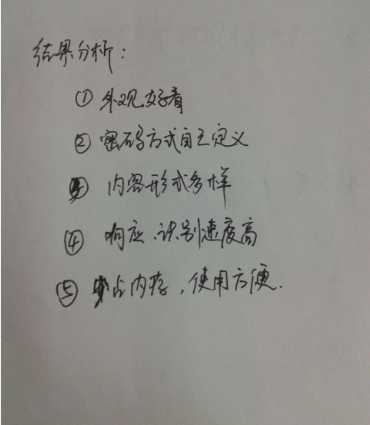 结果分析:
① 外观好看
② 密码方式自主定义
③ 内容形式多样
④ 响应、识别速度高
⑤ 少占内存,使用方便.